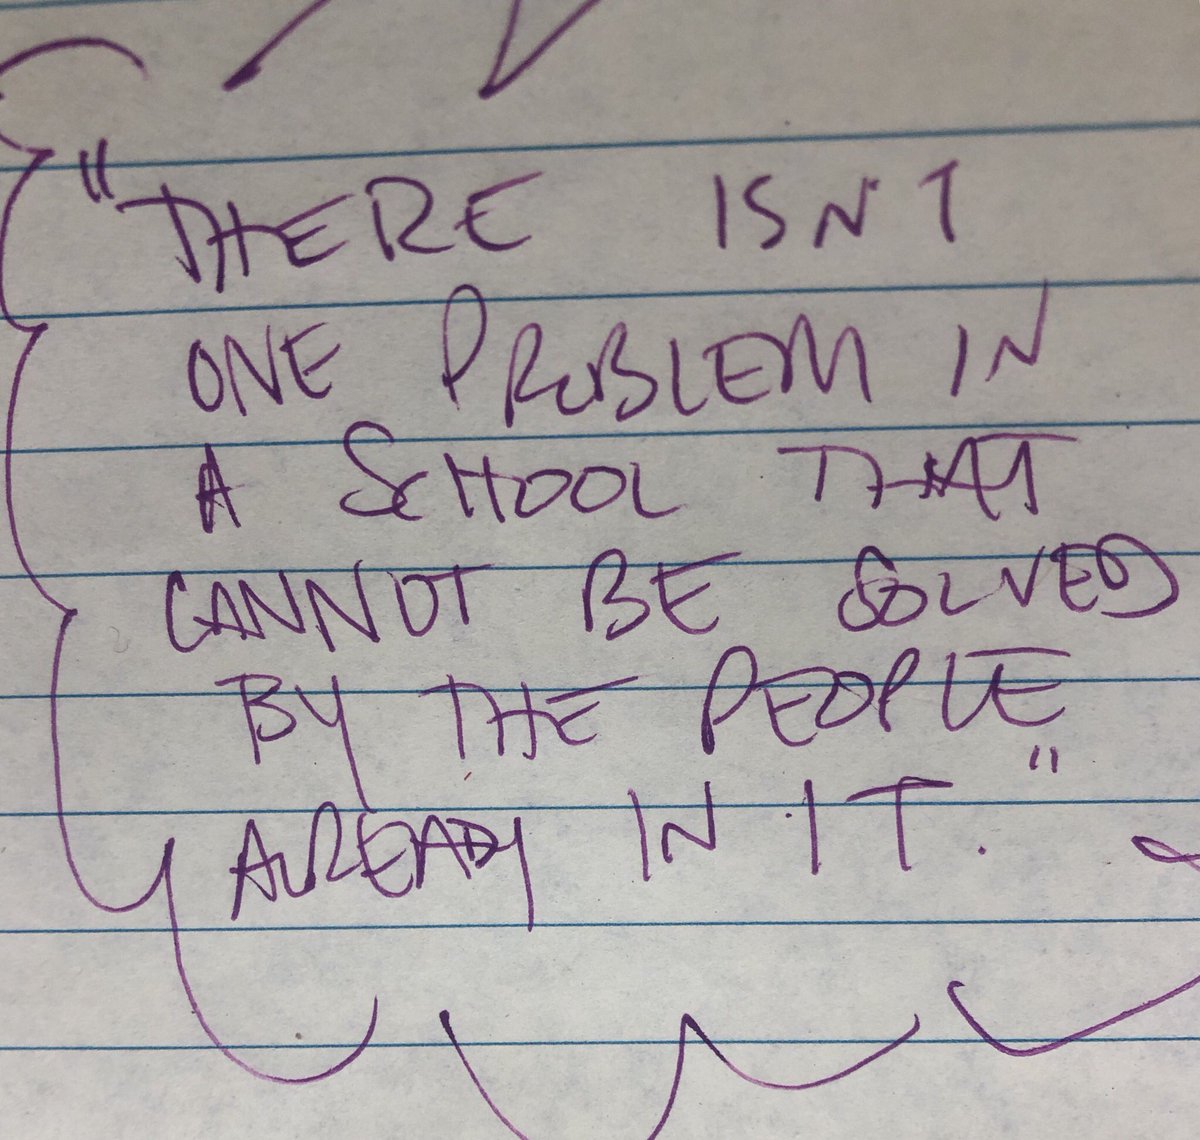 "THERE ISN'T
ONE PROBLEM IN
A SCHOOL THAT
CANNOT BE SOLVED
BY THE PEOPLE
ALREADY IN IT."